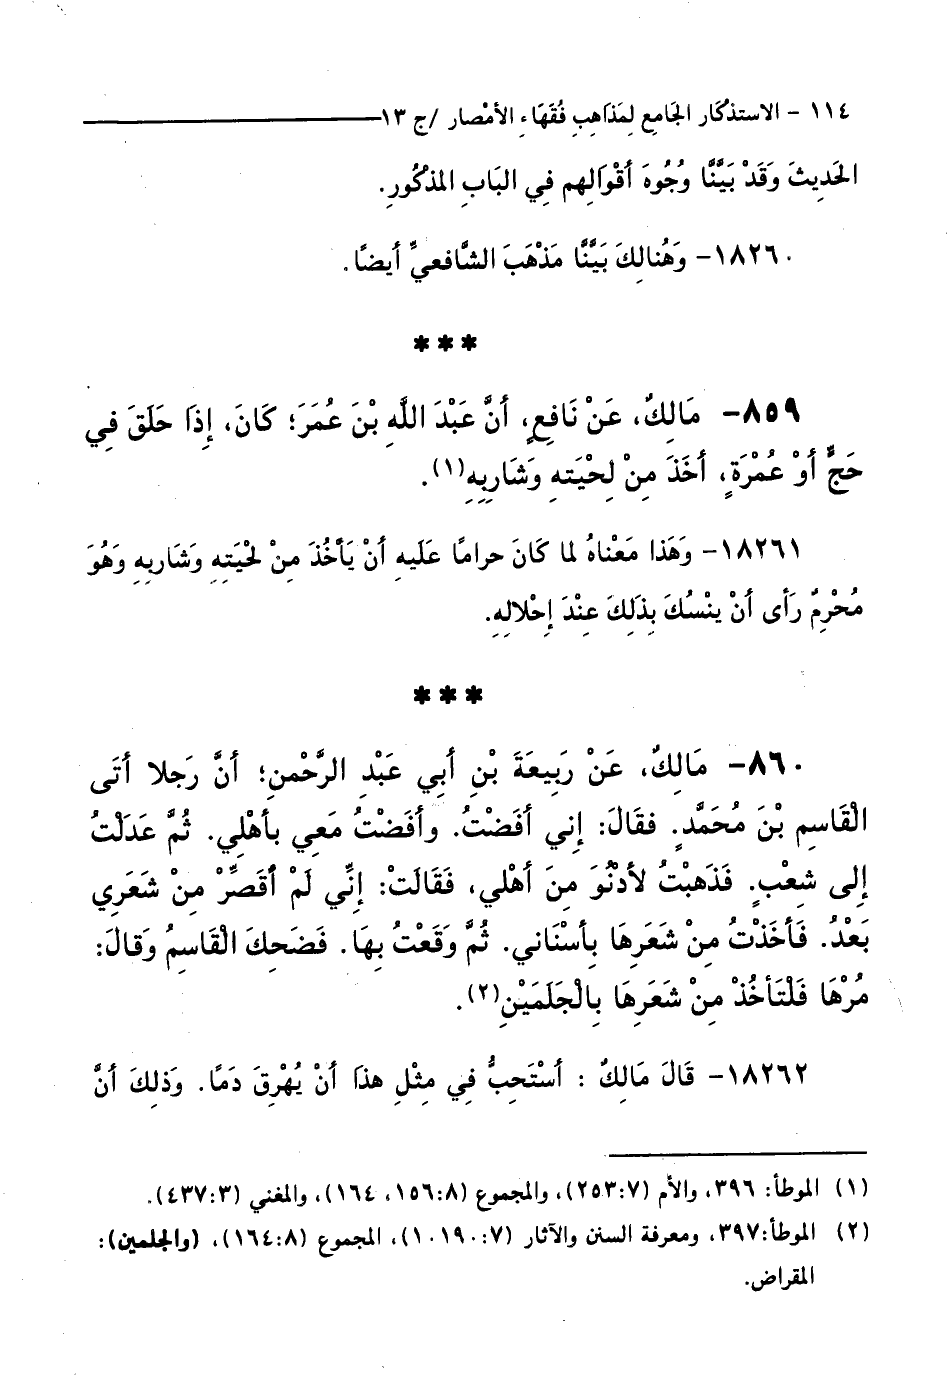 ١١٤ - الاستذكَار الجَامع لِمَذَاهِبِ فُقَهَاءِ الأمْصار /ج ١٣
الحَدِيثَ وَقَدْ بَيَّنَّا وُجُوهَ أقْوَالِهم فِي البَابِ المَذْكُورِ.
١٨٢٦٠- وَهُنالِكَ بَيَّنَّا مَذْهَبَ الشَّافعيِّ أيضًا.
***
٨٥٩- مَالِكٌ، عَنْ نَافِعٍ، أنَّ عَبْدَ اللَّهِ بْنَ عُمَرَ؛ كَانَ، إِذَا حَلَقَ فِي
حَجٍّ أوْ عُمْرَةٍ، أخَذَ مِنْ لِحْيَتهِ وَشَارِبِهِ(١).
١٨٢٦١- وَهَذا مَعْناهُ لما كَانَ حرامًا عَلَيهِ أنْ يَأخُذَ مِنْ لحْيَتِهِ وَشَاربِهِ وَهُوَ
مُحْرِمٌ رَأى أنْ ينْسُكَ بِذَلِكَ عِنْدَ إحْلالِهِ.
***
٨٦٠- مَالِكٌ، عَنْ رَبِيعَةَ بْنِ أبي عَبْدِ الرَّحْمنِ؛ أنَّ رَجلا أتَى
الْقَاسِمِ بْنَ مُحَمَّدٍ. فقَالَ: إني أفَضْتُ. وأفَضْتُ مَعِي بأهْلِي. ثُمَّ عَدَلْتُ
إلى شِعْبٍ. فَذَهبْتُ لأدْنُوَ مِنَ أهْلي، فَقَالَتْ: إنِّي لَمْ أقَصِّرْ مِنْ شَعَرِي
بَعْدُ. فَأخَذْتُ مِنْ شَعَرِهَا بِأسْنَاني. ثُمَّ وَقَعْتُ بِهَا. فَضَحِكَ الْقَاسِمُ وَقالَ:
مُرْهَا فَلْتَأخُذْ مِنْ شَعَرِهَا بِالْجَلَمَيْنِ(٢).
١٨٢٦٢- قَالَ مَالِكٌ : أسْتَحِبُّ فِي مِثْلِ هذَا أنْ يُهْرِقَ دَمًا. وَذلِكَ أنَّ
(١) الموطأ: ٣٩٦، والأم (٢٥٣:٧)، والمجموع (١٥٦:٨، ١٦٤)، والمغني (٤٣٧:٣).
(٢) الموطأ:٣٩٧، ومعرفة السنن والآثار (١٠١٩٠:٧)، المجموع (١٦٤:٨)، (والجلمين):
المقراض.